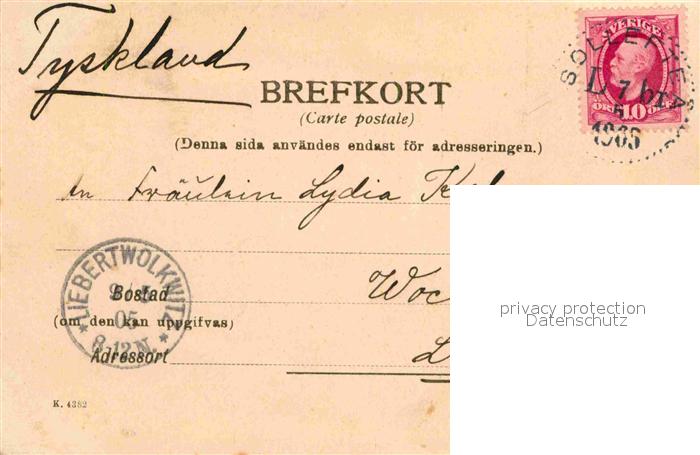 Tyskland
SVERIGE
SOLLEFTEÅ
L 7 br
5
1905
ÖRE 10 ÖRE
BREFKORT
(Carte postale)
(Denna sida användes endast för adresseringen.)
Fräulein Lydia
privacy protection
Datenschutz
LIEBERTWOLKWITZ
05
8-12 N.
Bostad
(om den kan uppgifvas)
Adressort
K. 4382